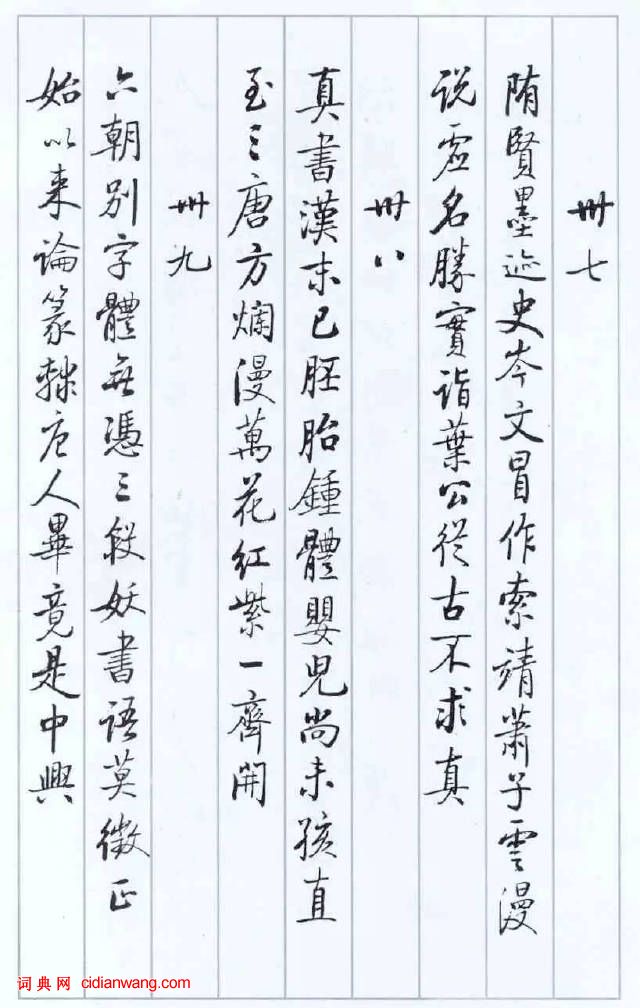 卅七
隋賢墨迹史岑文冒作索靖蕭子雲漫
说虛名勝實詣葉公從古不求真
卅八
真書漢末已胚胎鍾體嬰兒尚未孩直
至三唐方爛漫萬花紅紫一齊開
卅九
六朝別字體無憑三段妖書語莫徵正
始以来論篆隸唐人畢竟是中興
词典网 cidianwang.com